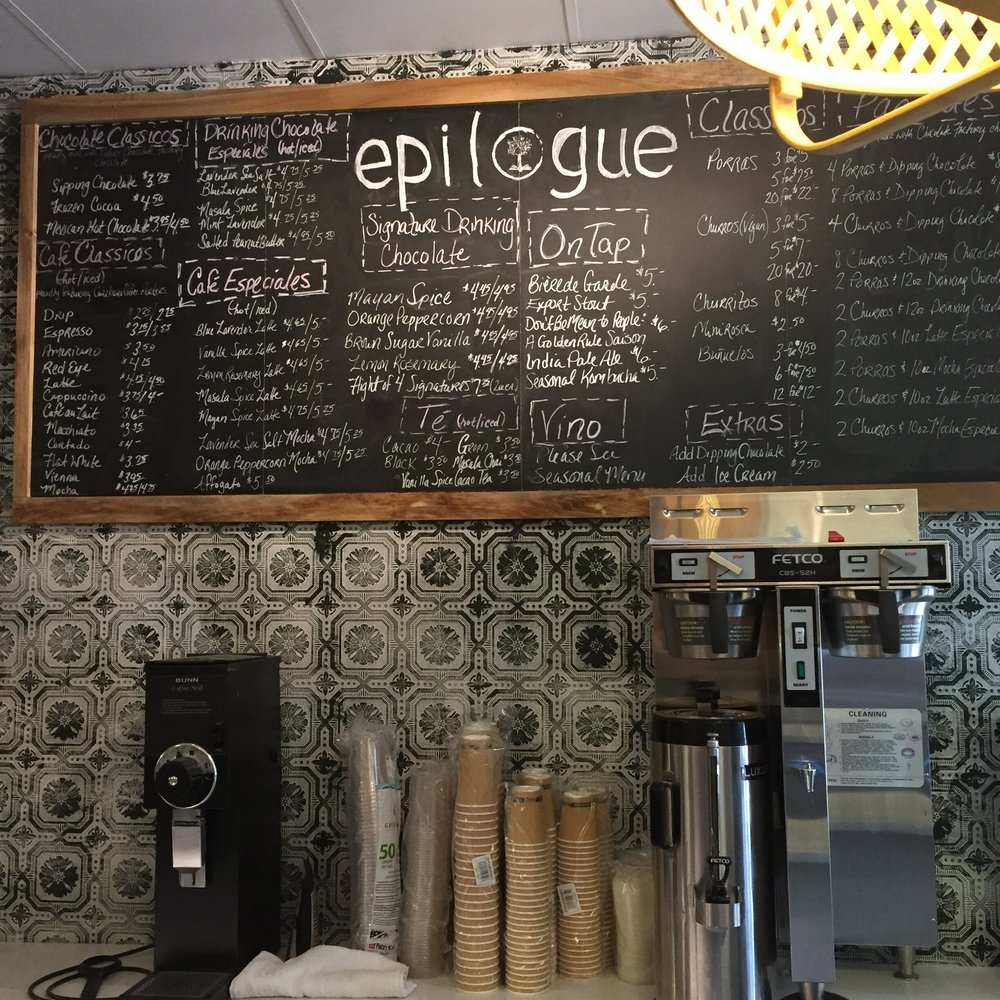 epilogue
Chocolate Classicos
Sipping Chocolate $3.75
Frozen Cocoa $4.50
Mexican Hot Chocolate $3.95/4.50
Café Classicos
(hot/iced)
Drip
Espresso
Americano 3.50
Red Eye $4.25
Latte
Cappuccino
Café au Lait 3.65
Macchiato $3.35
Cortado $4-
Flat White $3.75
Vienna 3.95
Mocha $4.25/4.75
Drinking Chocolate
Especiales (hot/iced)
Lavender Sea Salt $4.75/5.25
Blue Lavender $4.75/5.25
Masala Spice $4.75/5.25
Mint Lavender $4.75/5.25
Salted Peanut Butter $4.95/5.50
Café Especiales
(hot/iced)
Blue Lavender Latte $4.65/5-
Vanilla Spice Latte $4.65/5-
Lemon Rosemary Latte $4.65/5-
Masala Spice Latte $4.65/5-
Mayan Spice Latte $4.75/5.25
Lavender Sea Salt Mocha $4.75/5.25
Orange Peppercorn Mocha $4.75/5.25
Affogato $5.50
Signature Drinking
Chocolate
Mayan Spice $4.45/4.95
Orange Peppercorn $4.45/4.95
Brown Sugar Vanilla $4.45/4.95
Lemon Rosemary $4.45/4.95
Flight of 4 Signatures $7.25 (2oz ea)
Té (hot/iced)
Cacao $4-
Green $3.50
Black $3.50
Masala Chai $3.50
Vanilla Spice Cacao Tea $3.50
On Tap
Brière de Garde $5-
Export Stout $5-
Don't Be Mean to People: $6
A Golden Rule Saison
India Pale Ale $6-
Seasonal Kombucha $5-
Vino
Please See
Seasonal Menu
Classicos
Porras 3 for $5-
20 for $22-
Churros (Vegan) 3 for $5-
5 for $7-
20 for $20-
Churritos 8 for $4-
Mini Rosca $2.50
Buñuelos 3 for $4.50
6 for $7.50
12 for $12-
Extras
Add Dipping Chocolate $2-
Add Ice Cream $2.50
4 Porras & Dipping Chocolate
8 Porras & Dipping Chocolate
4 Churros & Dipping Chocolate
8 Churros & Dipping Chocolate
2 Porras & 12oz Drinking Chocolate
2 Churros & 12oz Drinking Chocolate
2 Porras & 10oz. Latte Especial
2 Porras & 10oz Mocha Especial
2 Churros & 10oz Latte Especial
2 Churros & 10oz Mocha Especial
FETCO
CBS-52H
BREW
BREW
CAUTION!
CAUTION!
POWER
READY
CLEANING
DAILY
WEEKLY
LUXUS
FETCO
BUNN
Coffee Mill
50